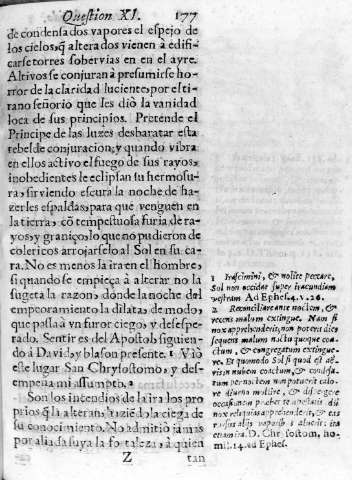 Question XI. 177
de condensados vapores el espejo de
los cielos, q̃ alterados vienen à edifi-
carse torres sobervias en en el ayre.
Altivos se conjuran à presumirse ho-
rror de la claridad luciente, por el ti-
rano señorio que les diò la vanidad
loca de sus principios. Pretende el
Principe de las luzes desbaratar esta
rebelde conjuracion; y quando vibra
en ellos activo el fuego de sus rayos,
inobedientes le eclipsan su hermosu-
ra, sirviendo escura la noche de ha-
zerles espaldas, para que venguen en
la tierra, cõ tempestuosa furia de ra-
yos, y graniço, lo que no pudieron de
colericos arrojarselo al Sol en su ca-
ra. No es menos la ira en el hombre,
si quando se empieça à alterar no la
sugeta la razon, donde la noche del
empeoramiento la dilata, de modo,
que passa à vn furor ciego, y desespe-
rado. Sentir es del Apostol, siguien-
do à David, y blason presente. 1 Viò
este lugar San Chrysostomo, y des-
empeña mi assumpto. 2
Son los incendios de la ira los pro
prios q̃ la alteran, haziẽdola ciega de
su conocimiento. No admitiò jamas
por aliada suya la fortaleza, à quien
Z tan
1 Irascimini, & nolite peccare,
Sol non occidat super iracundiam
vestram Ad Ephes. 4. v. 26.
2 Reconciliare ante noctem, &
recens malum extingue. Nam si
nox apprehenderit, non poterit dies
sequens malum noctu quoque coa-
ctum, & congregatum extingue-
re. Et quomodo Sol si quod est
vaporis nubem coactum, &
pernoctem non potuerit calo-
re diurno mollire, &
occasionem præbet
nox reliquias apprehenderit, &
rursus alijs vaporib s
etiam ira. D. Chrysostom, ho-
mil. 14. ad Ephes.